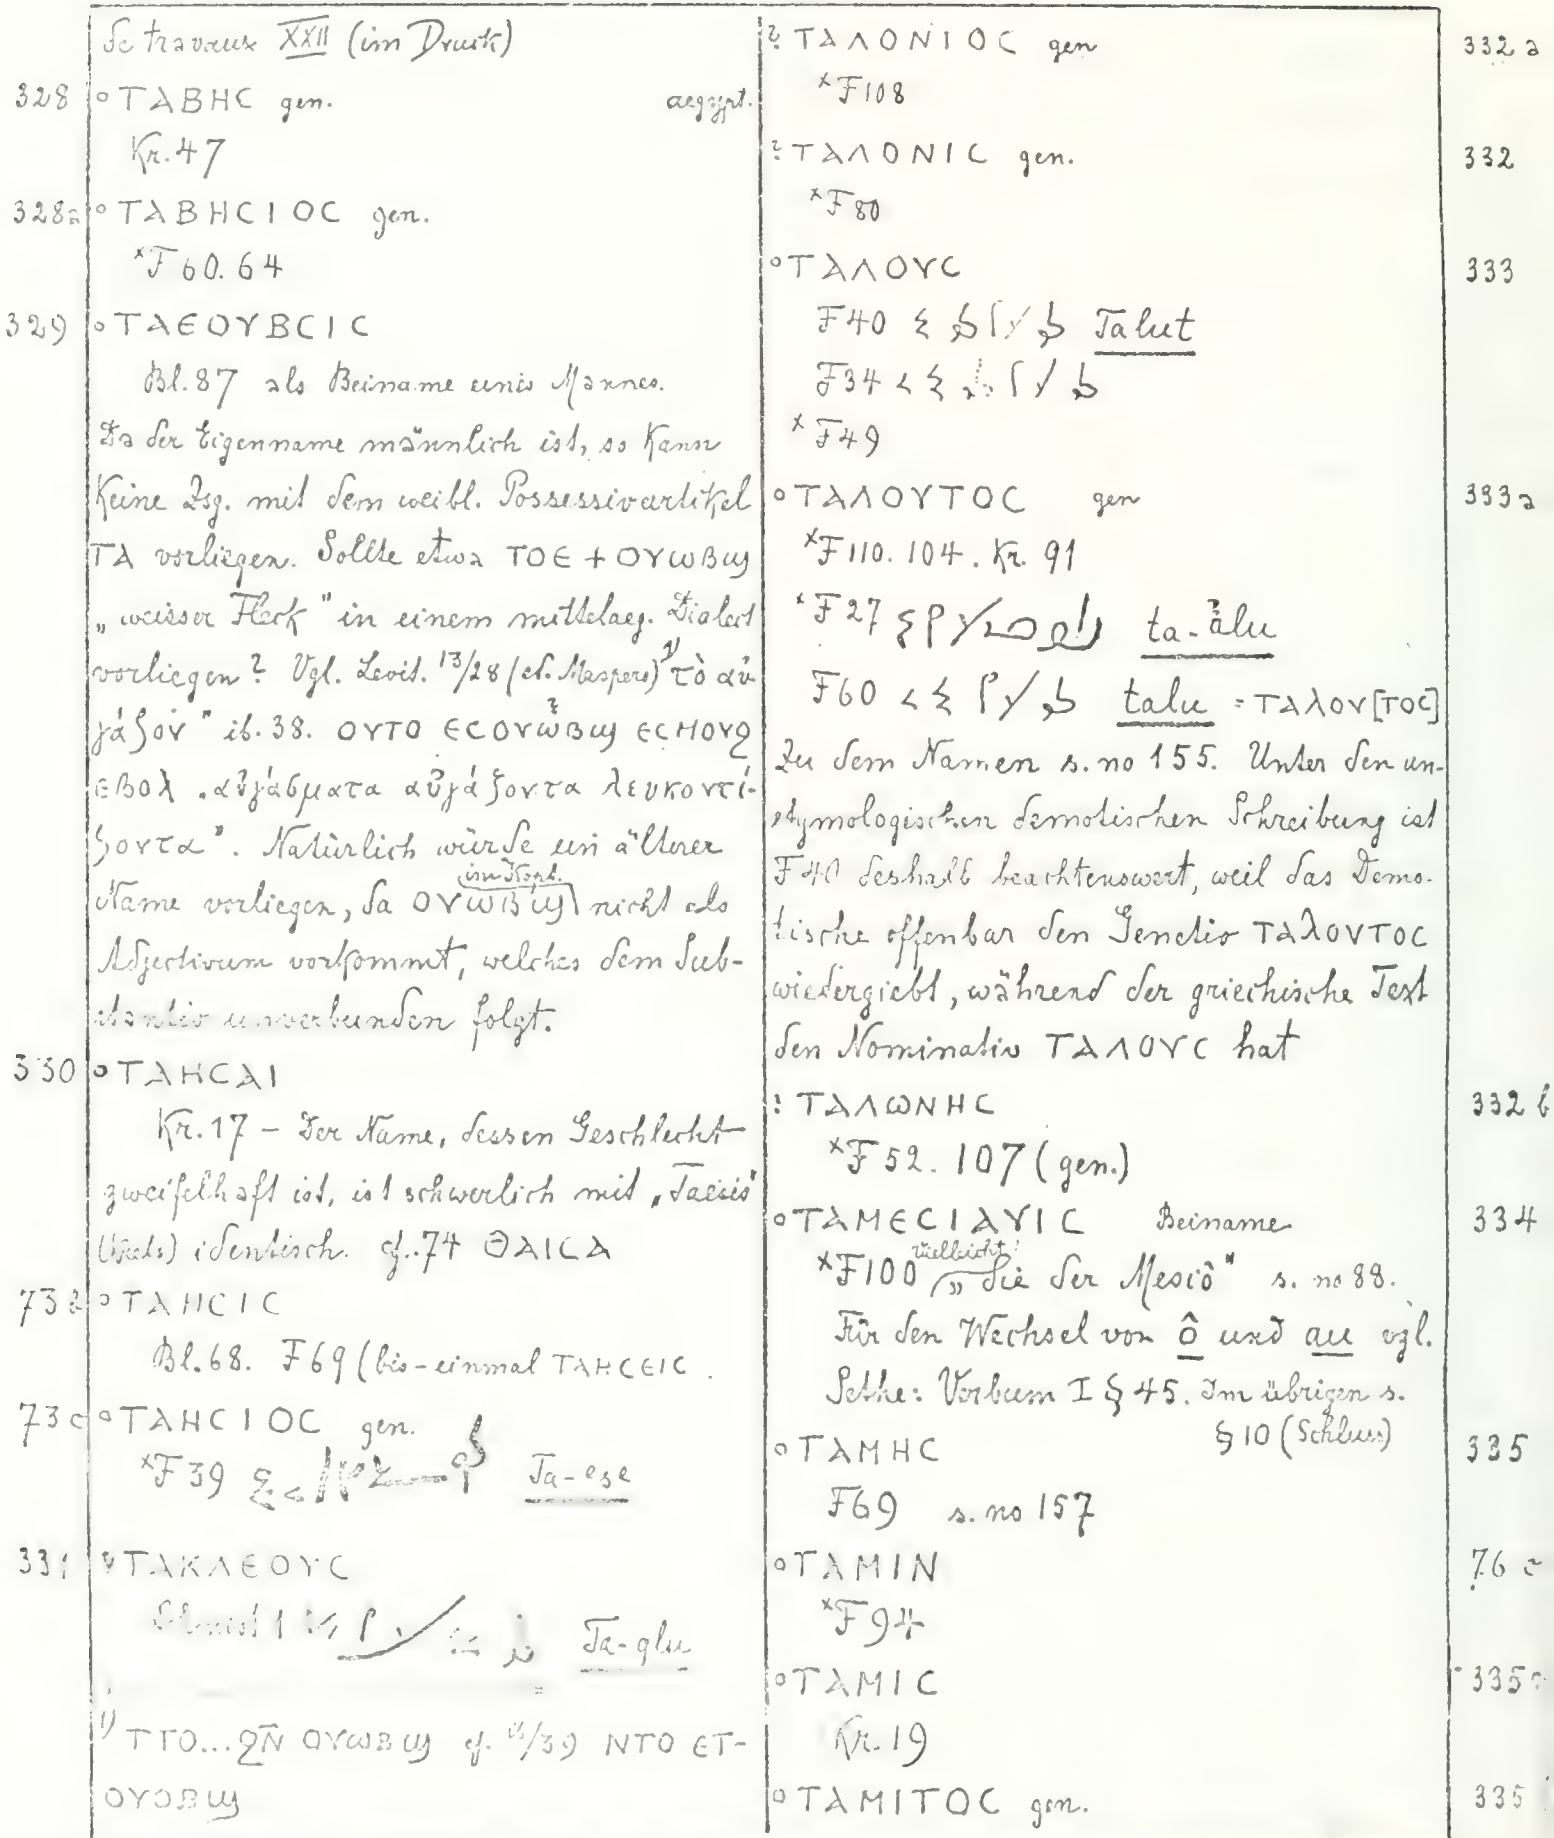 de travaux XXII (im Druck)
328 ° ΤΑΒΗC gen. aegypt.
Kr. 47
328a ° ΤΑΒΗCΙΟC gen.
*F 60. 64
329 ° ΤΑΕΟΥΒCΙC
Bl. 87 als Beiname eines Mannes.
Da der Eigenname männlich ist, so kann
keine Zsg. mit dem weibl. Possessivartikel
ΤΑ vorliegen. Sollte etwa ΤΟΕ + ΟΥωΒϣ
„weisser Fleck" in einem mittelaeg. Dialect
vorliegen? Vgl. Levit. 13/28 (ed. Maspero) 1) τὸ αὐ-
γάζον" ib. 38. ΟΥΤΟ ΕCΟΥωΒϣ ΕCΜΟΥϩ
ΕΒΟλ „αὐγάσματα αὐγάζοντα λευκοντί-
ζοντα". Natürlich würde ein älterer
Name vorliegen, da ΟΥωΒϣ im Kopt. nicht als
Adjectivum vorkommt, welches dem Sub-
stantiv unverbunden folgt.
330 ° ΤΑΗCΑΙ
Kr. 17 – Der Name, dessen Geschlecht
zweifelhaft ist, ist schwerlich mit „Taësis"
identisch. cf. 74 ΘΑΙCΑ
73b ° ΤΑΗCΙC
Bl. 68. F 69 (bis - einmal ΤΑΗCΕΙC.
73c ° ΤΑΗCΙΟC gen.
*F 39 Ta-ese
331 ΤΑΚΛΕΟΥC
1 Ta-qlu
1) ΤΤΟ... ϩΝ̄ ΟΥωΒϣ cf. 13/39 ΝΤΟ ΕΤ-
ΟΥΟΒϣ
? ΤΑΛΟΝΙΟC gen 332a
*F 108
? ΤΑΛΟΝΙC gen. 332
*F 80
° ΤΑΛΟΥC 333
F 40 Talut
F 34
*F 49
° ΤΑΛΟΥΤΟC gen 333a
*F 110. 104. Kr. 91
*F 27 ta-ʾalu
F 60 talu = ΤΑλΟΥ[ΤΟC]
Zu dem Namen s. no 155. Unter den un-
etymologischen demotischen Schreibung ist
F 40 deshalb beachtenswert, weil das Demo-
tische offenbar den Genetiv ΤΑλΟΥΤΟC
wiedergiebt, während der griechische Text
den Nominativ ΤΑΛΟΥC hat
? ΤΑΛωΝΗC 332b
*F 52. 107 (gen.)
° ΤΑΜΕCΙΑΥΙC Beiname 334
*F 100 vielleicht „die der Mesiô" s. no 88.
Für den Wechsel von ô und au vgl.
Sethe: Verbum I § 45. Im übrigen s.
§ 10 (Schluss)
° ΤΑΜΗC 335
F 69 s. no 157
° ΤΑΜΙΝ 76c
*F 94
° ΤΑΜΙC 335
Kr. 19
° ΤΑΜΙΤΟC gen. 335